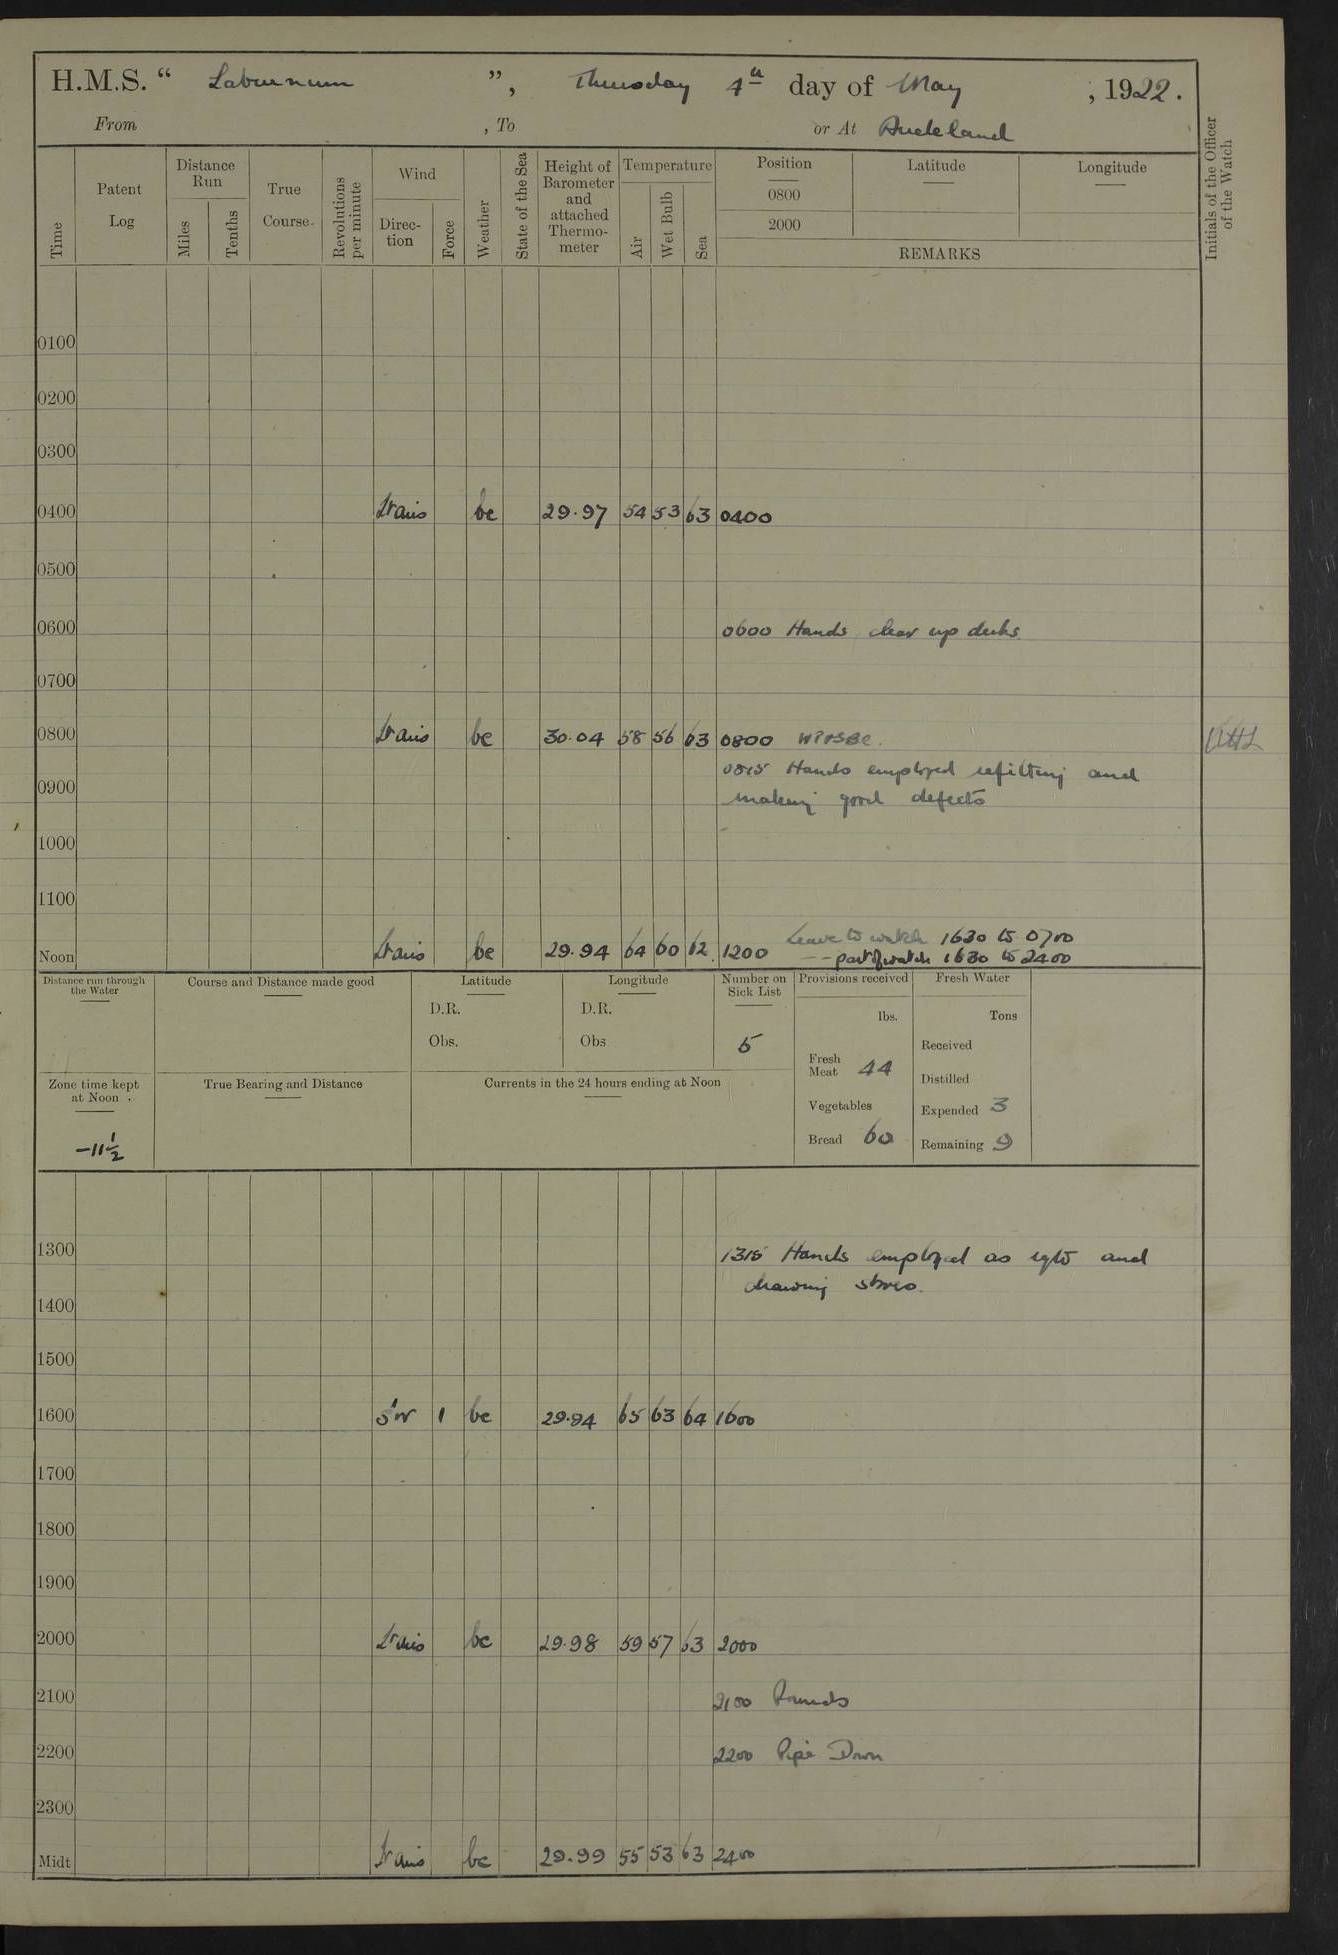 H.M.S. “ Laburnum ”, Thursday 4th day of May , 1922.
From , To or At Auckland
Time
Patent Log
Distance Run
Miles
Tenths
True Course.
Revolutions per minute
Wind
Direc-tion
Force
Weather
State of the Sea
Height of Barometer and attached Thermo-meter
Temperature
Air
Wet Bulb
Sea
Position Latitude Longitude
0800
2000
REMARKS
Initials of the Officer of the Watch
0100
0200
0300
0400 Lt airs bc 29.97 54 53 63 0400
0500
0600 0600 Hands clear up decks
0700
0800 Lt airs bc 30.04 58 56 63 0800
0815 Hands employed refitting and
0900 making good defects
1000
1100
Leave to watch 1630 to 0700
Noon Lt airs bc 29.94 64 60 62 1200 -- part of watch 1630 to 2400
Distance run through the Water
Course and Distance made good
Latitude
D.R.
Obs.
Longitude
D.R.
Obs
Number on Sick List
5
Provisions received
lbs.
Fresh Meat 44
Vegetables
Bread 60
Fresh Water
Tons
Received
Distilled
Expended 3
Remaining 9
Zone time kept at Noon .
-11 1/2
True Bearing and Distance
Currents in the 24 hours ending at Noon
1300 1315 Hands employed as reqte and
drawing stores.
1400
1500
1600 S'W 1 bc 29.94 65 63 64 1600
1700
1800
1900
2000 Lt airs bc 29.98 59 57 63 2000
2100 2100 Rounds
2200 2200 Pipe Down
2300
Midt Lt airs bc 29.99 55 53 63 2400